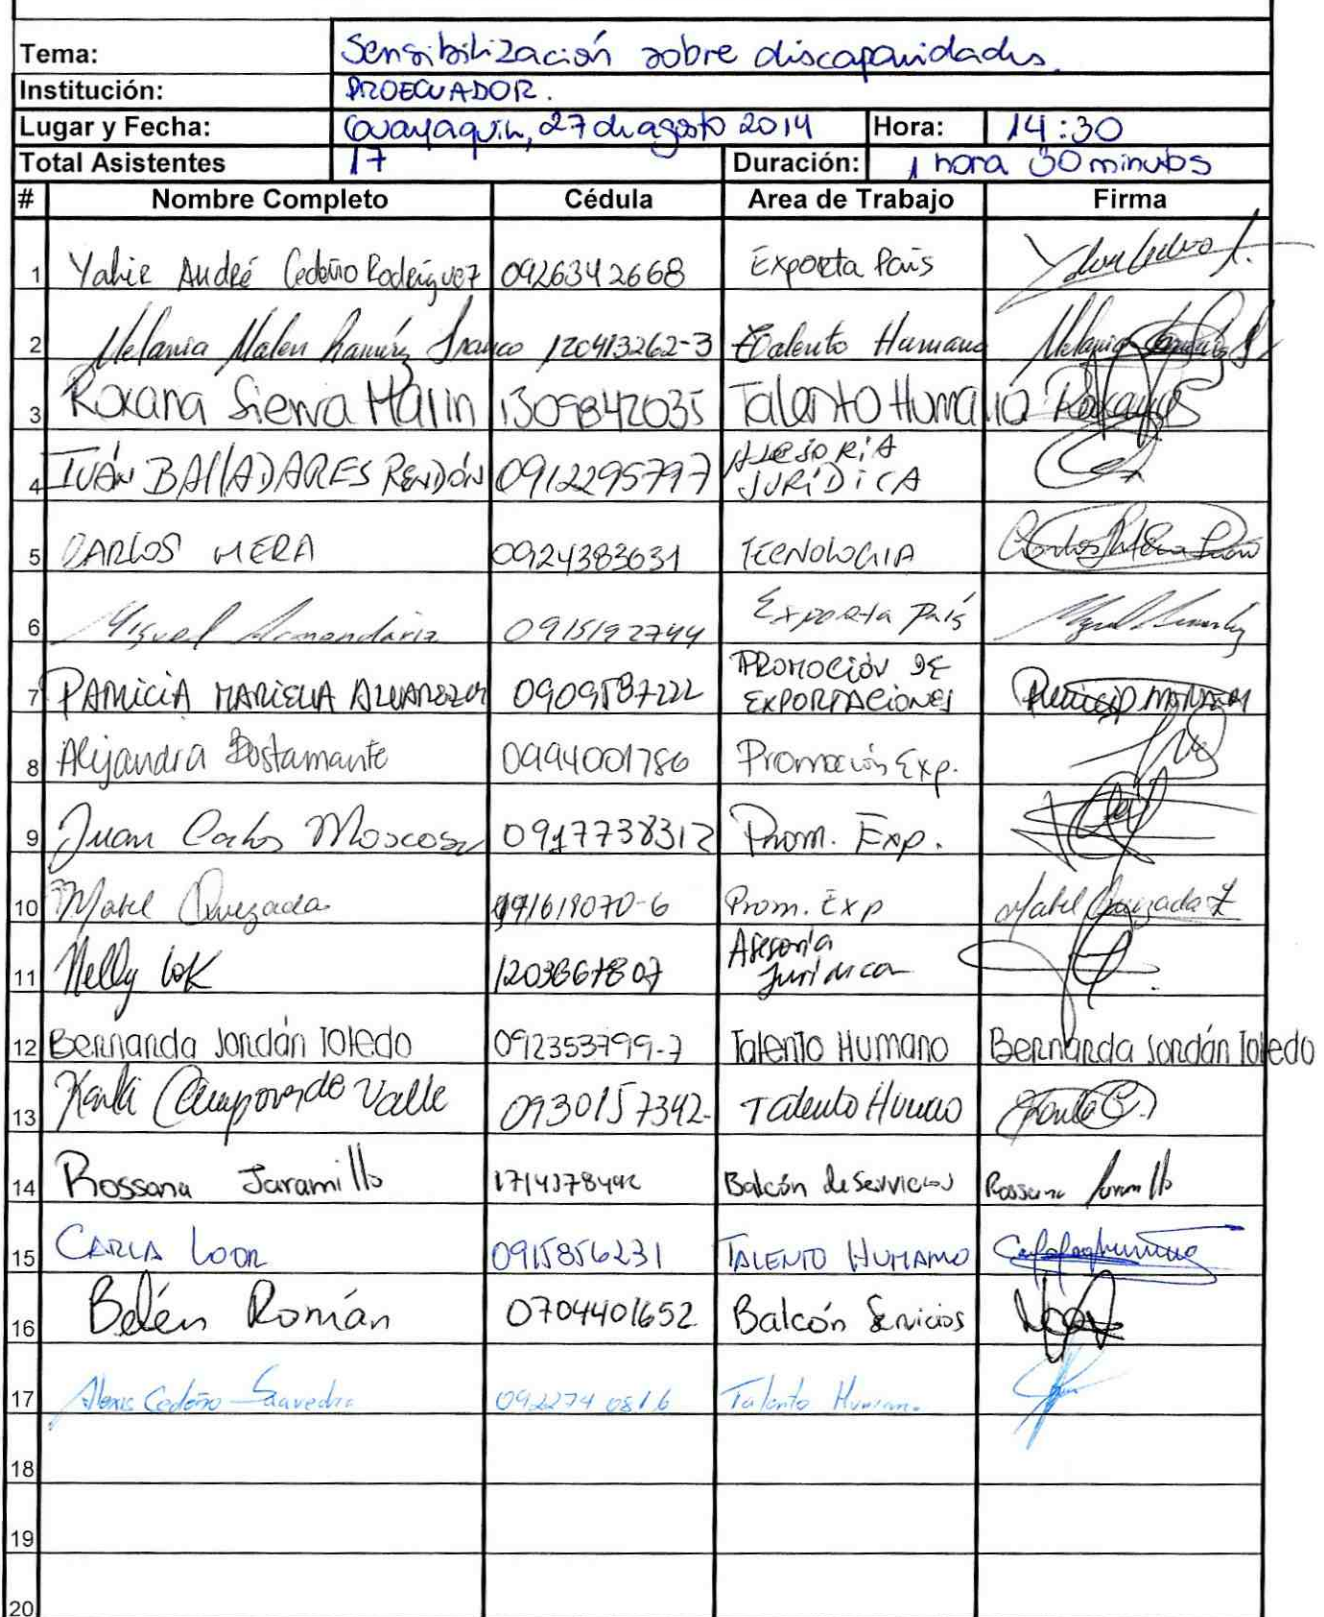 Tema: Sensibilización sobre discapacidades.
Institución: PROECUADOR.
Lugar y Fecha: Guayaquil, 27 de agosto 2014 Hora: 14:30
Total Asistentes 17 Duración: 1 hora 30 minutos
# Nombre Completo Cédula Area de Trabajo Firma
1 Yahir André Cedeño Rodríguez 0926342668 Exporta País
2 Melania Malen Ramírez Franco 120413262-3 Talento Humano
3 Roxana Sierra Marin 1309842035 Talento Humano Roxana
4 IVÁN BALLADARES RENDÓN 0912295797 ASESORIA JURÍDICA
5 CARLOS MERA 0924383631 TECNOLOGIA
6 Miguel Armendariz 0915192744 Exporta País
7 PATRICIA MARIELLA 0909587222 PROMOCIÓN DE EXPORTACIONES
8 Alejandra Bustamante Promoción Exp.
9 Juan Carlos Moscoso 0917738312 Prom. Exp.
10 Mabel Quezada Prom. Exp Mabel Quezada Z
11 Nelly Lok Asesoría Jurídica
12 Bernarda Jordán Toledo 092353799-7 Talento Humano Bernarda Jordán Toledo
13 Karla Campoverde Valle 0930157342- Talento Humano Karla C.
14 Rossana Jaramillo Balcón de Servicios Rossana Jaramillo
15 CARLA LOOR 0915856231 TALENTO HUMANO
16 Belén Román 0704401652 Balcón Servicios
17 Alexis Cedeño Saavedra 0922740816 Talento Humano
18
19
20